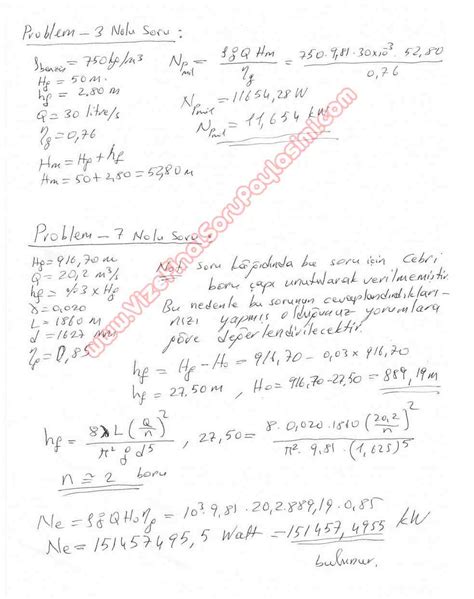 Problem - 3 Nolu Soru :
ρbenzin = 750 kg/m3
Hg = 50 m.
hf = 2.80 m
Q = 30 litre/s
ηg = 0,76
Hm = Hg + hf
Hm = 50 + 2,80 = 52,80 m
NPmil = ρ g Q Hm / ηg = 750 . 9,81 . 30x10⁻³ . 52,80 / 0,76
NPmil = 11654,28 W
NPmil = 11,654 kW
www.VizeFinalSoruPaylasimi.com
Problem - 7 Nolu Soru :
Hg = 916,70 m
Q = 20,2 m³/s
hf = %3 x Hg
λ = 0,020
L = 1860 m
d = 1627 mm
ηp = 0,85
Not: soru kâğıdında bu soru için Cebri
boru çapı unutularak verilmemiştir.
Bu nedenle bu sorunun cevaplandırıldıkları-
nızı yapmış olduğunuz yorumlara
göre değerlendirilecektir.
hf = Hg - Ho = 916,70 - 0,03 x 916,70
hf = 27.50 m , Ho = 916,70 - 27,50 = 889,19 m
hf = 8 λ L (Q/n)² / π² g d⁵ , 27,50 = 8 . 0,020 . 1860 (20,2/n)² / π² . 9,81 . (1,625)⁵
n ≅ 2 boru
Ne = ρ g Q Ho ηg = 10³ . 9,81 . 20,2 . 889,19 . 0,85
Ne = 151457495,5 Watt = 151457,4955 kW
bulunur.